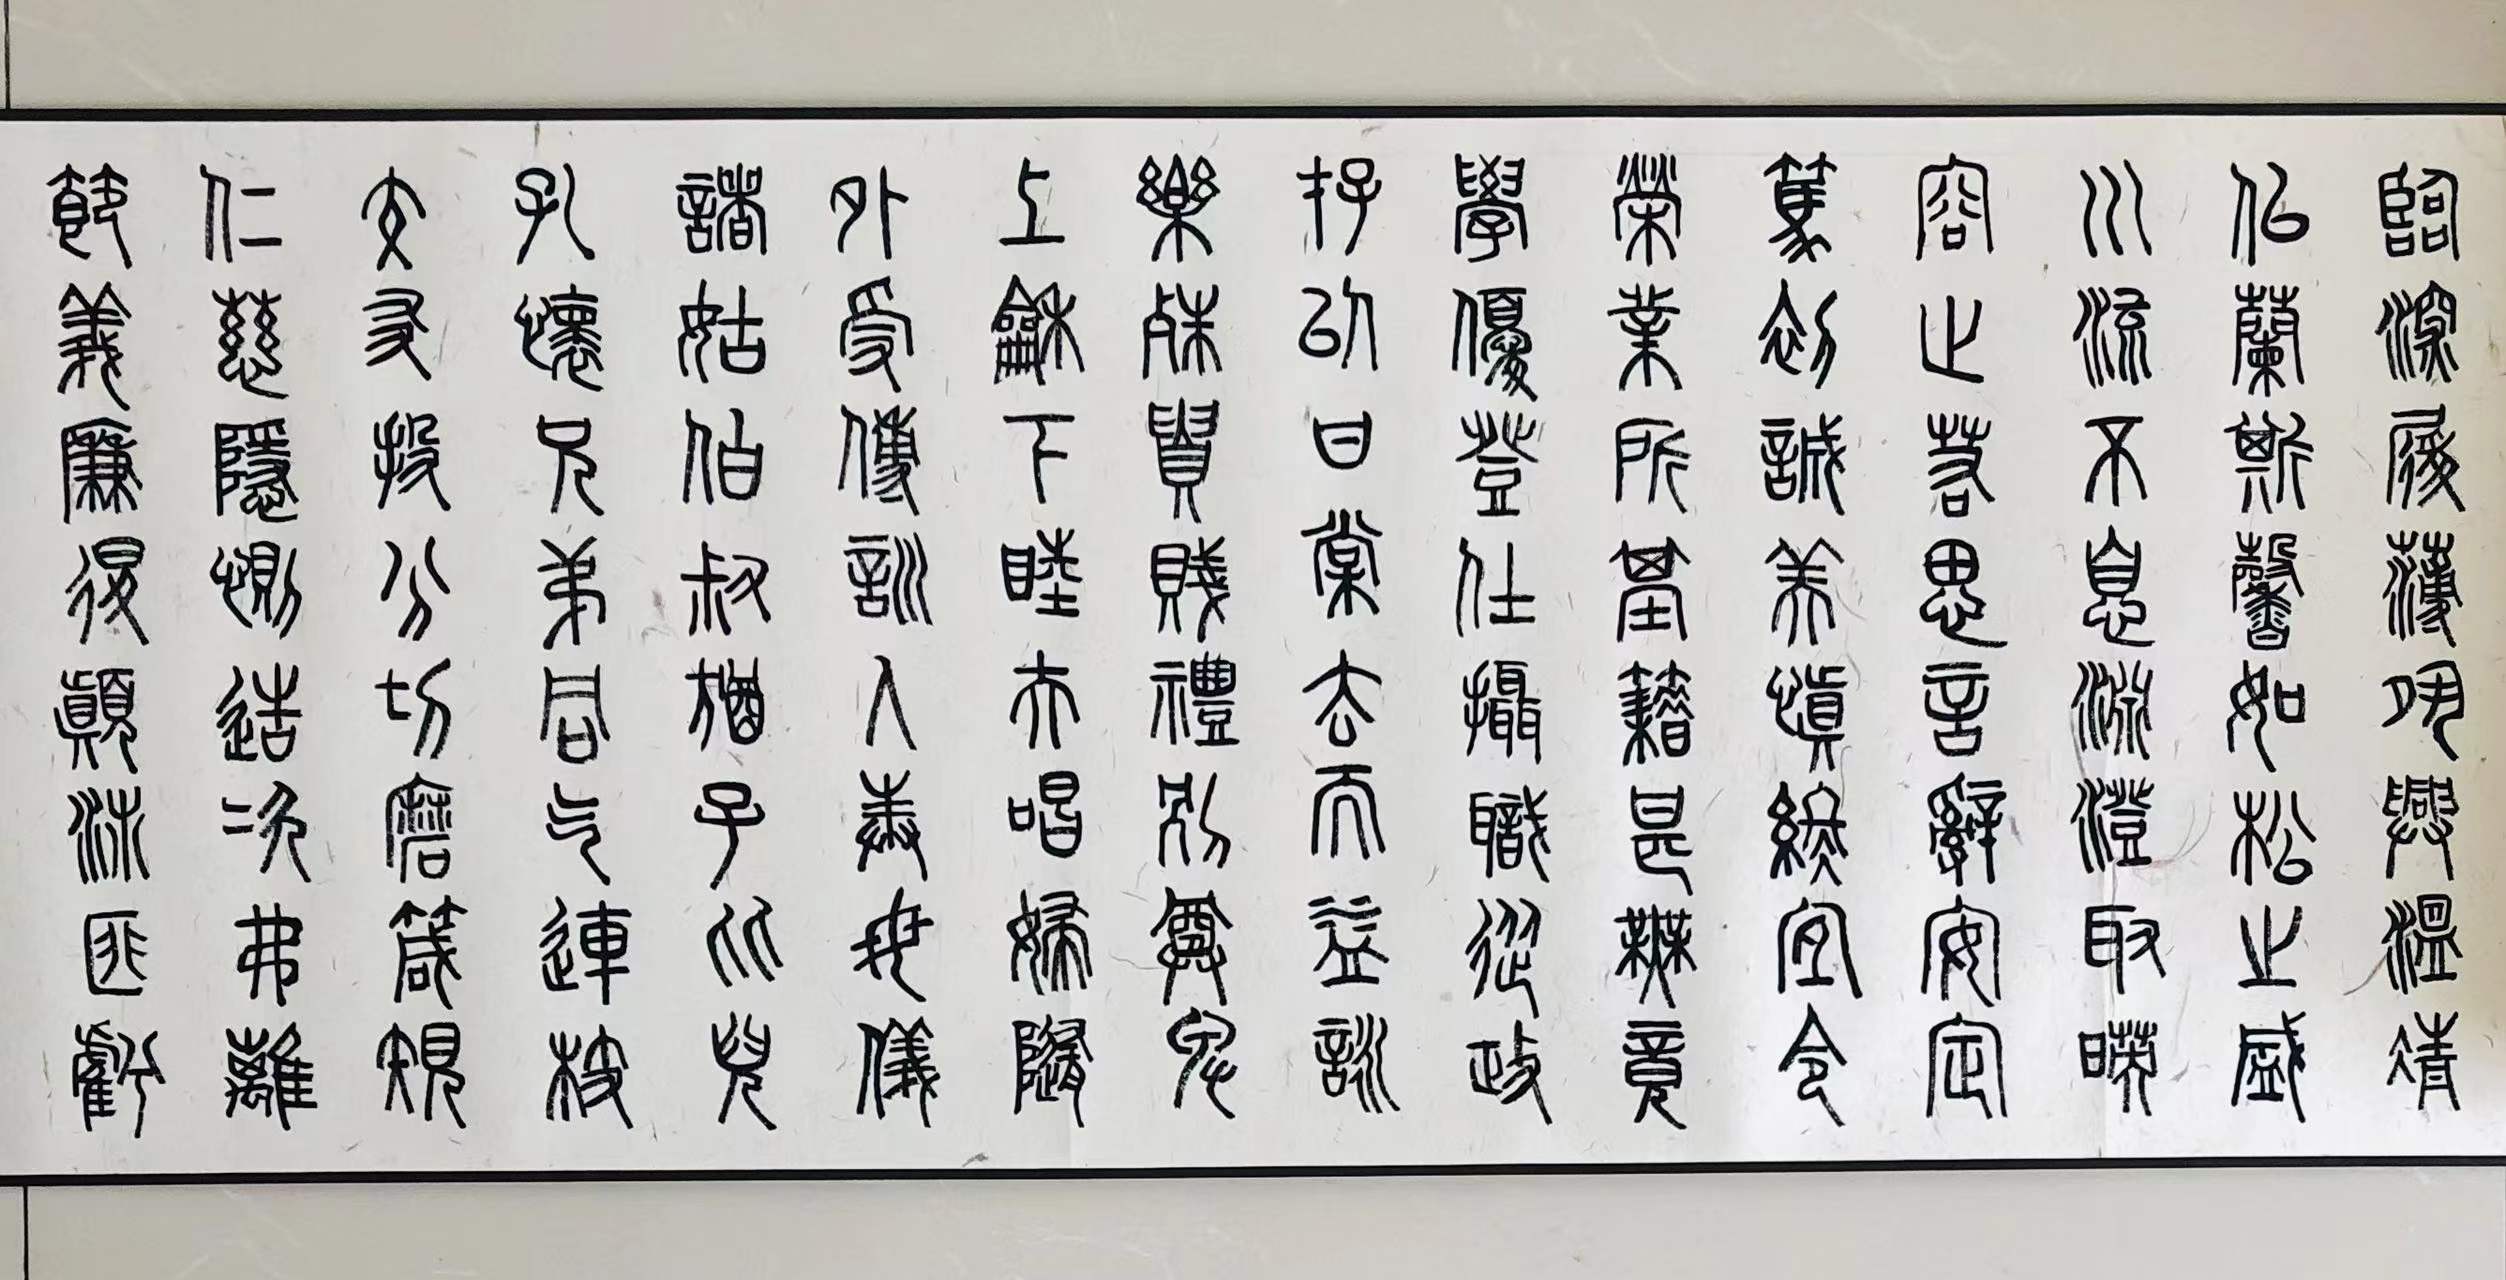 臨深履薄夙興溫凊
似蘭斯馨如松之盛
川流不息淵澄取暎
容止若思言辭安定
篤初誠美慎終宜令
榮業所基籍甚無竟
學優登仕攝職從政
存以甘棠去而益詠
樂殊貴賤禮別尊卑
上龢下睦夫唱婦隨
外受傅訓入奉母儀
諸姑伯叔猶子比兒
孔懷兄弟同气連枝
交友投分切磨箴規
仁慈隱惻造次弗離
節義廉退顛沛匪虧